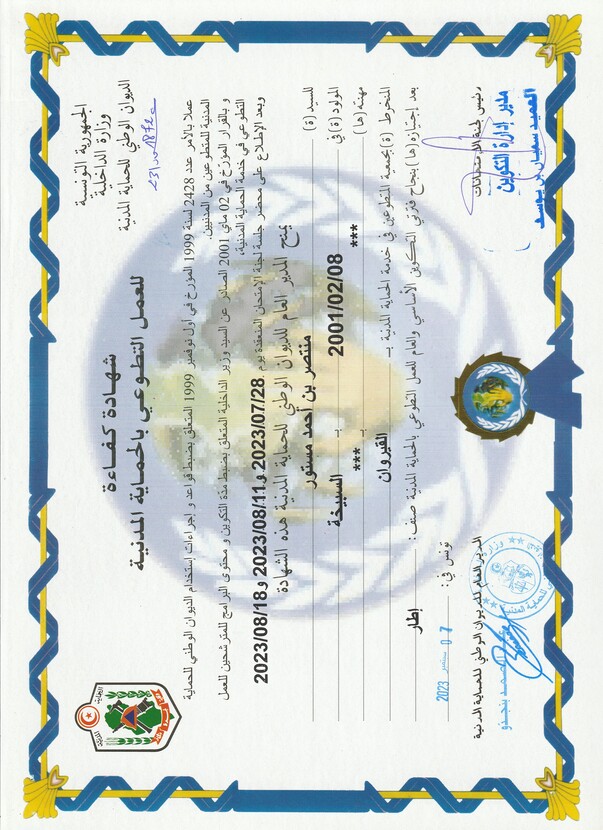 الجمهورية التونسية
وزارة الداخلية
الديوان الوطني للحماية المدنية
شهادة كفاءة
للعمل التطوعي بالحماية المدنية
عملا بالأمر عدد 2428 لسنة 1999 المؤرخ في أول نوفمبر 1999 المتعلق بضبط قواعد و إجراءات إستخدام الديوان الوطني للحماية
المدنية للمتطوعين من المدنيين.
و بالقرار المؤرخ في 02 ماي 2001 الصادر عن السيد وزير الداخلية المتعلق بضبط مدة التكوين و محتوى البرامج للمترشحين للعمل
التطوعي في خدمة الحماية المدنية.
وبعد الإطلاع على محضر جلسة لجنة الإمتحان المنعقدة يوم 2023/07/28 و 2023/08/11 و 2023/08/18
يمنح المدير العام للديوان الوطني للحماية المدنية هذه الشهادة
للسيد (ة) منتصر بن أحمد مستور
المولود(ة) في 2001/02/08 بـ السبيخة
مهنته (ها) *** بـ ***
المنخرط (ة) بجمعية المتطوعين في خدمة الحماية المدنية بـ القيروان
بعد إجتيازه(ها) بنجاح فترتي التكوين الأساسي والعام للعمل التطوعي بالحماية المدنية صنف: إطار
تونس في: 07 سبتمبر 2023
رئيس لجنة الامتحانات
مدير إدارة التكوين
العميد سفيان بن يوسف
المدير العام للديوان الوطني للحماية المدنية